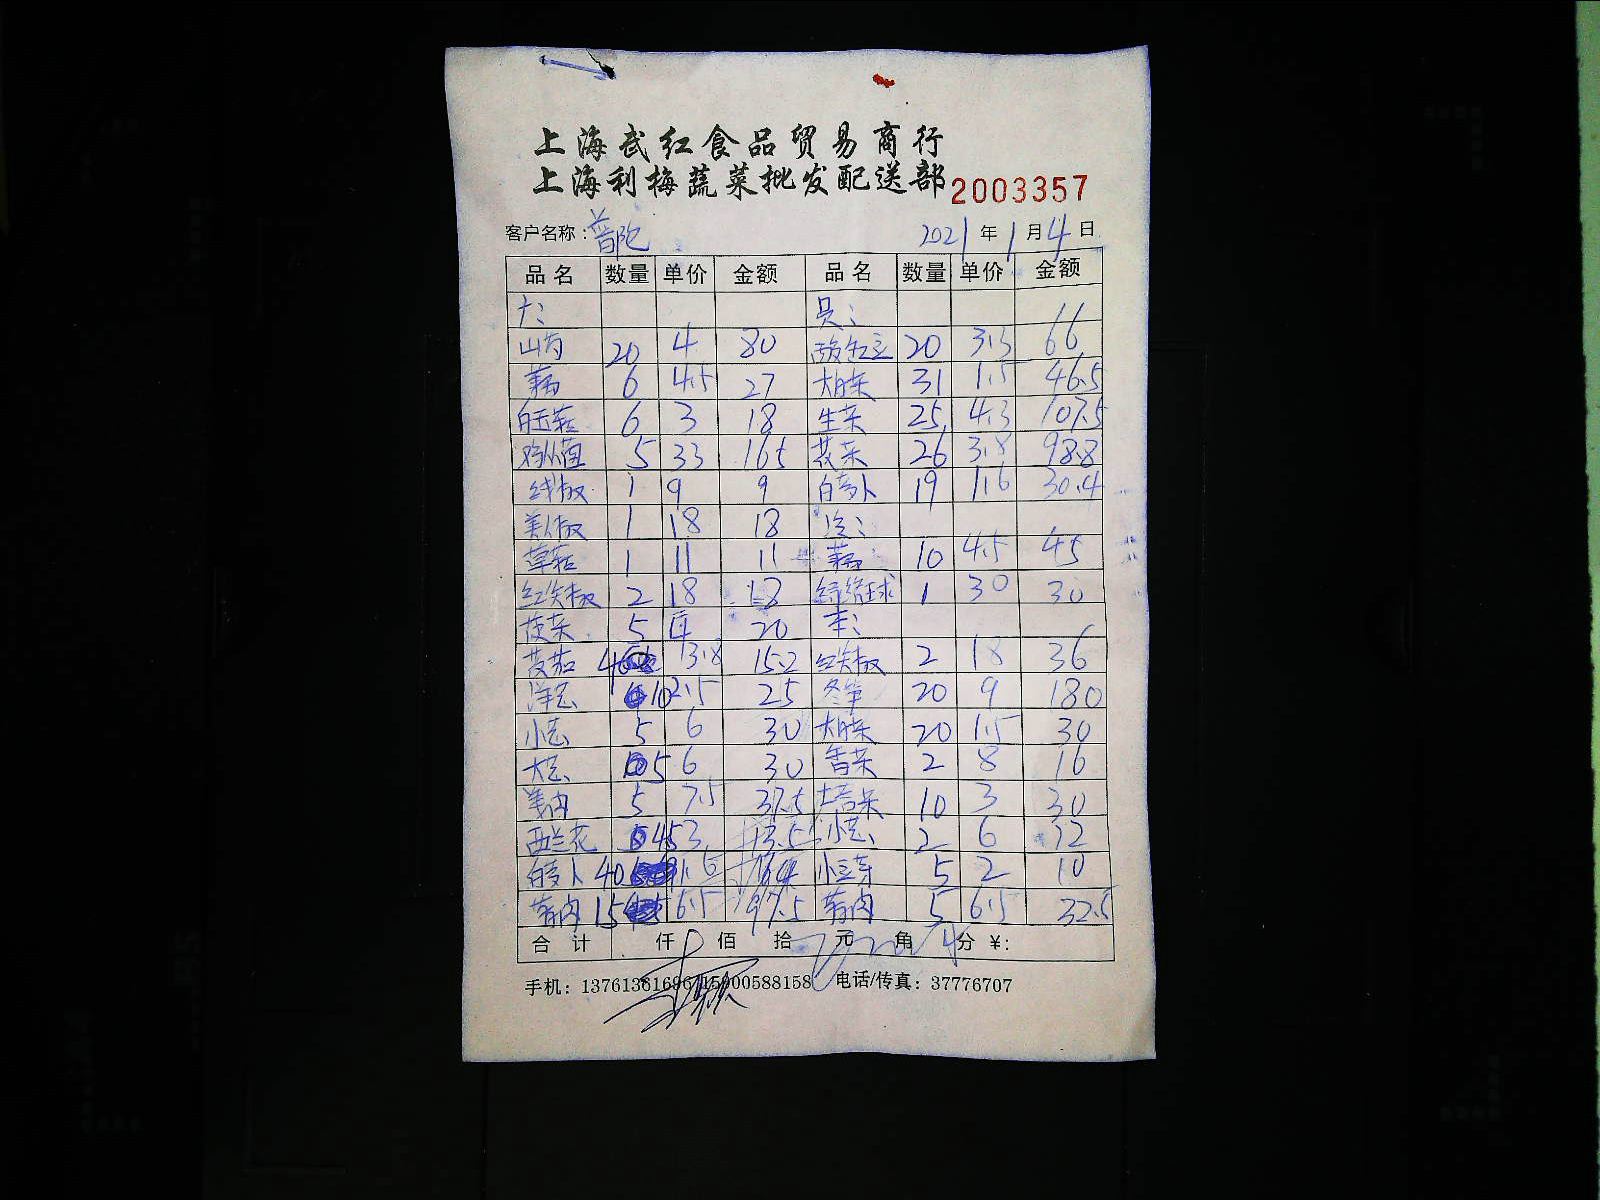 上海武红食品贸易商行
上海利梅蔬菜批发配送部 2003357
客户名称：普陀 2021年1月4日
品名 数量 单价 金额 品名 数量 单价 金额
山药 20 4 80 20 3.3 66
藕 6 4.5 27 31 1.5 46.5
6 3 18 生菜 25 4.3 107.5
鸡丛菌 5 33 165 花菜 26 3.8 98.8
红线椒 1 9 9 白萝卜 19 1.6 30.4
美人椒 1 18 18 冷：
草菇 1 11 11 藕 10 4.5 45
红尖椒 2 18 18 1 30 30
5 4 20
4 3.8 15.2 红尖椒 2 18 36
洋葱 10 2.5 25 冬笋 20 9 180
小葱 5 6 30 20 1.5 30
大葱 5 6 30 香菜 2 8 16
5 7.5 37.5 10 3 30
西兰花 45 3 小葱 2 6 12
白萝卜 40 1.6 小豆芽 5 2 10
15 6.5 97.5 5 6.5 32.5
合计 仟 佰 拾 元 角 分 ¥：
手机： 15900588158 电话/传真：37776707